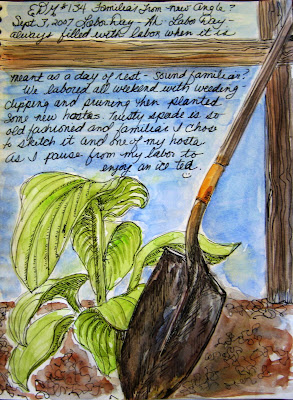 EDM #134 Familiar from new Angle?
Sept 3, 2007 Labor Day - Ah Labor Day -
always filled with labor when it is
meant as a day of rest - sound familiar?
We labored all weekend with weeding -
clipping and pruning then planted
some new hostas. Trusty spade is so
old fashioned and familiar I chose
to sketch it and one of my hosta
as I pause from my labor to
enjoy an ice tea.